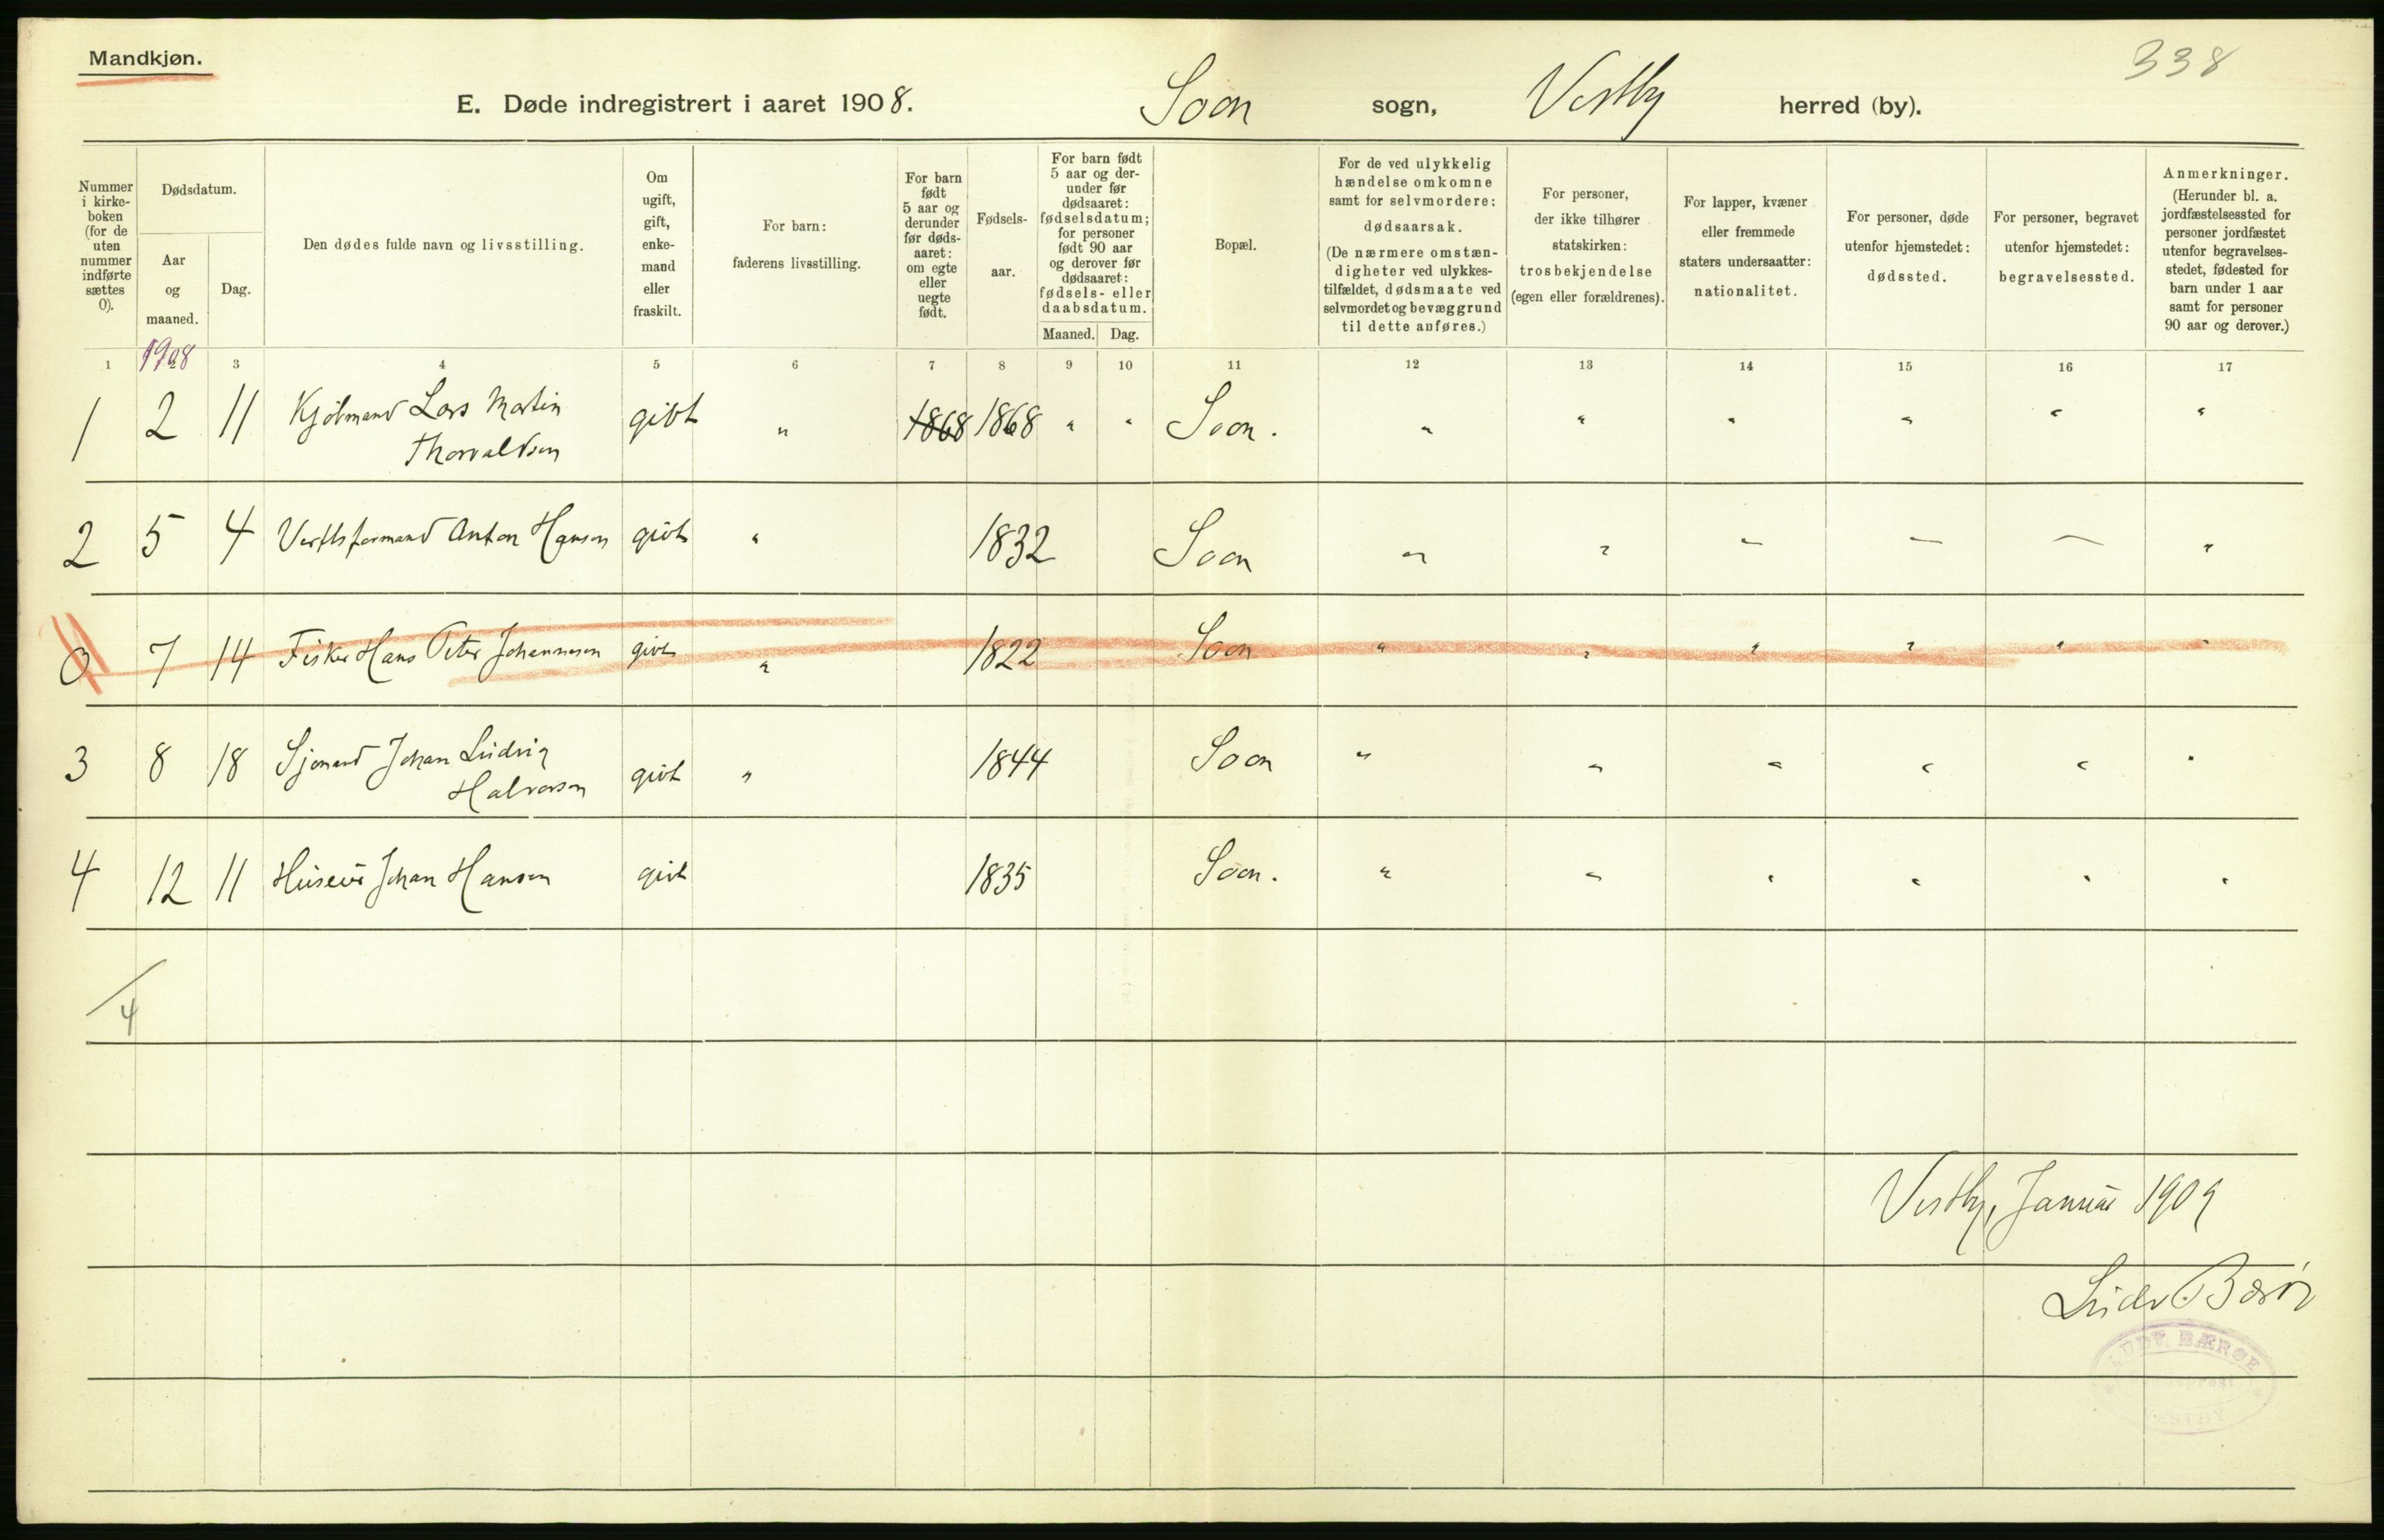 Mandkjøn.
338
E. Døde indregistrert i aaret 1908. Soon sogn, Vestby herred (by).
Nummer i kirke-boken (for de uten nummer indførte sættes 0).
Dødsdatum.
Aar og maaned.
Dag.
Den dødes fulde navn og livsstilling.
Om ugift, gift, enke-mand eller fraskilt.
For barn: faderens livsstilling.
For barn født 5 aar og derunder før døds-aaret: om egte eller uegte født.
Fødsels-aar.
For barn født 5 aar og der-under før dødsaaret: fødselsdatum; for personer født 90 aar og derover før dødsaaret: fødsels- eller daabsdatum.
Maaned. Dag.
Bopæl.
For de ved ulykkelig hændelse omkomne samt for selvmordere: dødsaarsak. (De nærmere omstæn-digheter ved ulykkes-tilfældet, dødsmaate ved selvmordet og bevæggrund til dette anføres.)
For personer, der ikke tilhører statskirken: trosbekjendelse (egen eller forældrenes).
For lapper, kvæner eller fremmede staters undersaatter: nationalitet.
For personer, døde utenfor hjemstedet: dødssted.
For personer, begravet utenfor hjemstedet: begravelsessted.
Anmerkninger. (Herunder bl. a. jordfæstelsessted for personer jordfæstet utenfor begravelses-stedet, fødested for barn under 1 aar samt for personer 90 aar og derover.)
1908
1 2 3 4 5 6 7 8 9 10 11 12 13 14 15 16 17
1 2 11 Kjøbmand Lars Martin Thorvaldsen givt " 1868 1868 " " Soon. " " " " " "
2 5 4 Verftsformand Anton Hansen givt " 1832 Soon " " — — — "
0 7 14 Fisker Hans Peter Johannesen givt " 1822 Soon " " " " " "
3 8 18 Sjømand Johan Ludvig Halvorsen givt " 1844 Soon " " " " " "
4 12 11 Huseier Johan Hansen givt 1835 Soon. " " " " " "
4
Vestby, Januar 1909
Ludv. Bærø
LUDV. BÆRØE
VESTBY